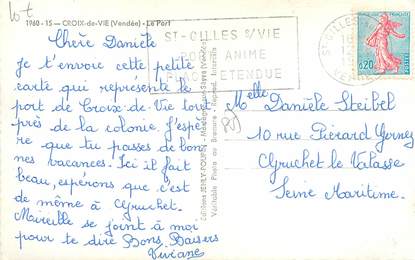 lot
1960 - 15 - CROIX-de-VIE (Vendée) - Le Port
Chère Danièle
Je t'envoie cette petite
carte qui représente le
port de Croix-De-Vie tout
près de la colonie. J'espè
re que tu passes de bon
nes vacances. Ici il fait
beau, espérons que c'est
de même à Gruchet.
Mireille se joint à moi
pour te dire Bons Baisers
Viviane
ST-GILLES S/VIE
PORT ANIME
PLAGE ETENDUE
ST GILLES
VENDEE
0,20
Editions
Véritable Photo au Bromure - Reprod. Interdite
Melle Danièle Steibel
10 rue Piérard Gornez
Gruchet le Valasse
Seine Maritime.